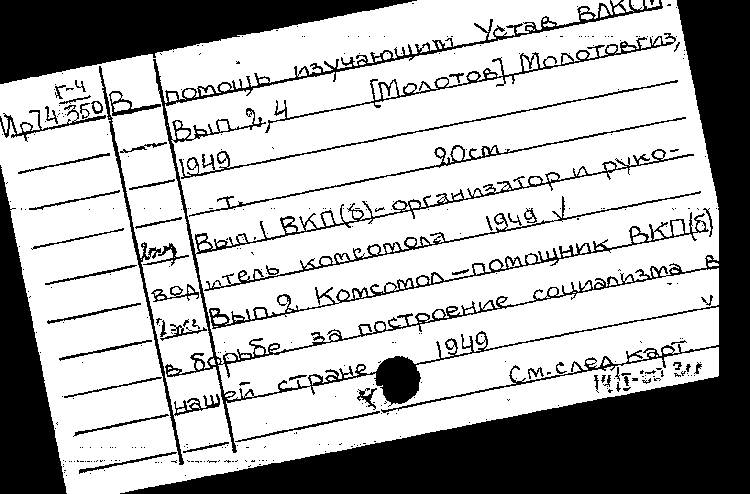 Г-4
Ир74 350
В помощь изучающим Устав ВЛКСМ.
Вып. 2, 4 [Молотов], Молотовгиз,
1949
т. 20 см.
Вып. 1 ВКП(б) - организатор и руко-
водитель комсомола 1949 √
2 экз. Вып. 2. Комсомол - помощник ВКП(б)
в борьбе за построение социализма в
нашей стране 1949 √
См. след. карт.